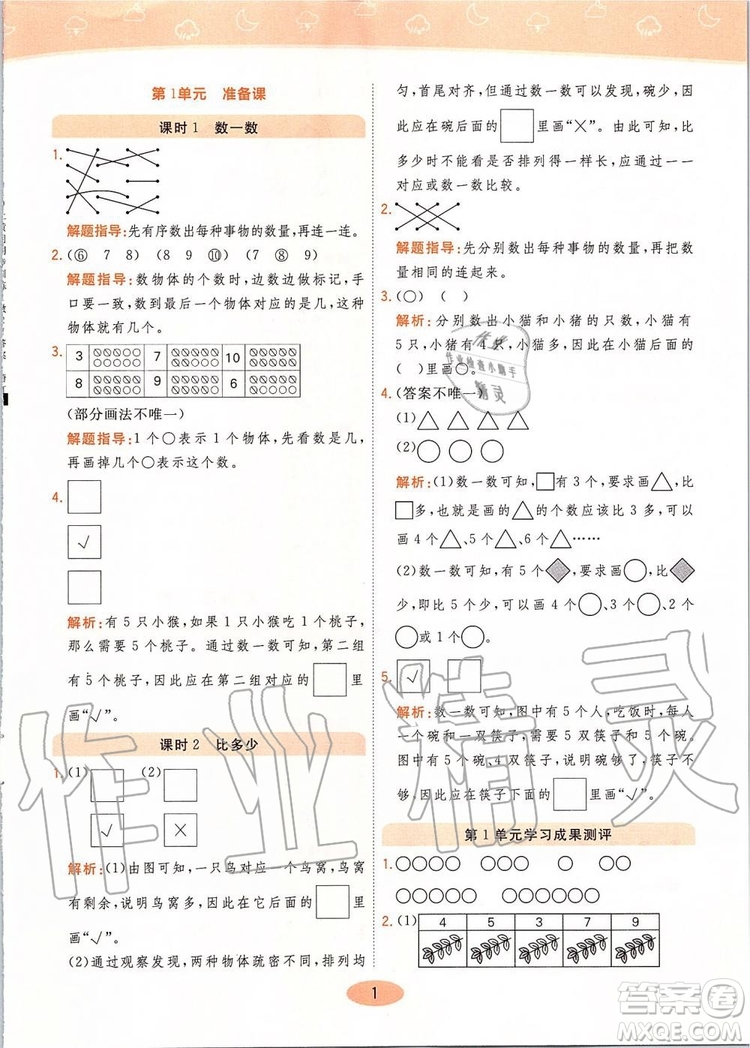 第1单元　准备课
课时1　数一数
1.
解题指导:先有序数出每种事物的数量,再连一连。
2.(⑥　7　8)　(8　9　⑩)　(7　⑧　9)
解题指导:数物体的个数时,边数边做标记,手
口要一致,数到最后一个物体对应的是几,这种
物体的数量就有几个。
3.
3　7　10
8　9　6
(部分画法不唯一)
解题指导:1个○表示1个物体,先看数是几,
再画掉几个○。
4.
√
解析:有5只小猴,如果1只小猴吃1个桃子,
那么需要5个桃子。通过数一数可知,第二组
有5个桃子,因此应在第二组对应的□里
画“√”。
课时2　比多少
1.(1)　(2)
√　×
解析:(1)由图可知,一只鸟对应一个鸟窝,鸟窝
有剩余,说明鸟窝多,因此在它后面的□里
画“√”。
(2)通过观察发现,两种物体疏密不同,排列均
匀,首尾对齐,但通过数一数可以发现,碗少,因
此应在碗后面的□里画“×”。由此可见,比
多少时不能看是否排列得一样长,应通过一一
对应或数一数比较。
2.
解题指导:先分别数出每种事物的数量,再将
数量相同的连起来。
3.(○)　(　)
解析:分别数出小猫和小猪的只数,小猫有
5只,小猪有4只,小猫多,因此在小猫后面的
(　)里画○。
4.(答案不唯一)
(1)△△△△
(2)○○○
解析:(1)数一数可知,□有3个,要求画△,比
□多,也就是画的△的个数应该比3多,所以可以
画4个△、5个△、6个△……
(2)数一数可知,有5个◆,要求画○,比◆
少,即比5少,可以画4个○、3个○、2个
○或1个○。
5.
√
解析:数一数可知,图中有5个人,吃饭时,每人
一个碗和一双筷子,需要5双筷子和5个碗。
图中有5个碗、4双筷子,说明碗够了,筷子不
够,因此应在筷子下面的□里画“√”。
第1单元学习成果测评
1.○○○○　○○○　○○
○○○○○　○○○○○○
2.(1)
4　5　7　7　9
1
作业精灵
答案圈
MXQE.COM